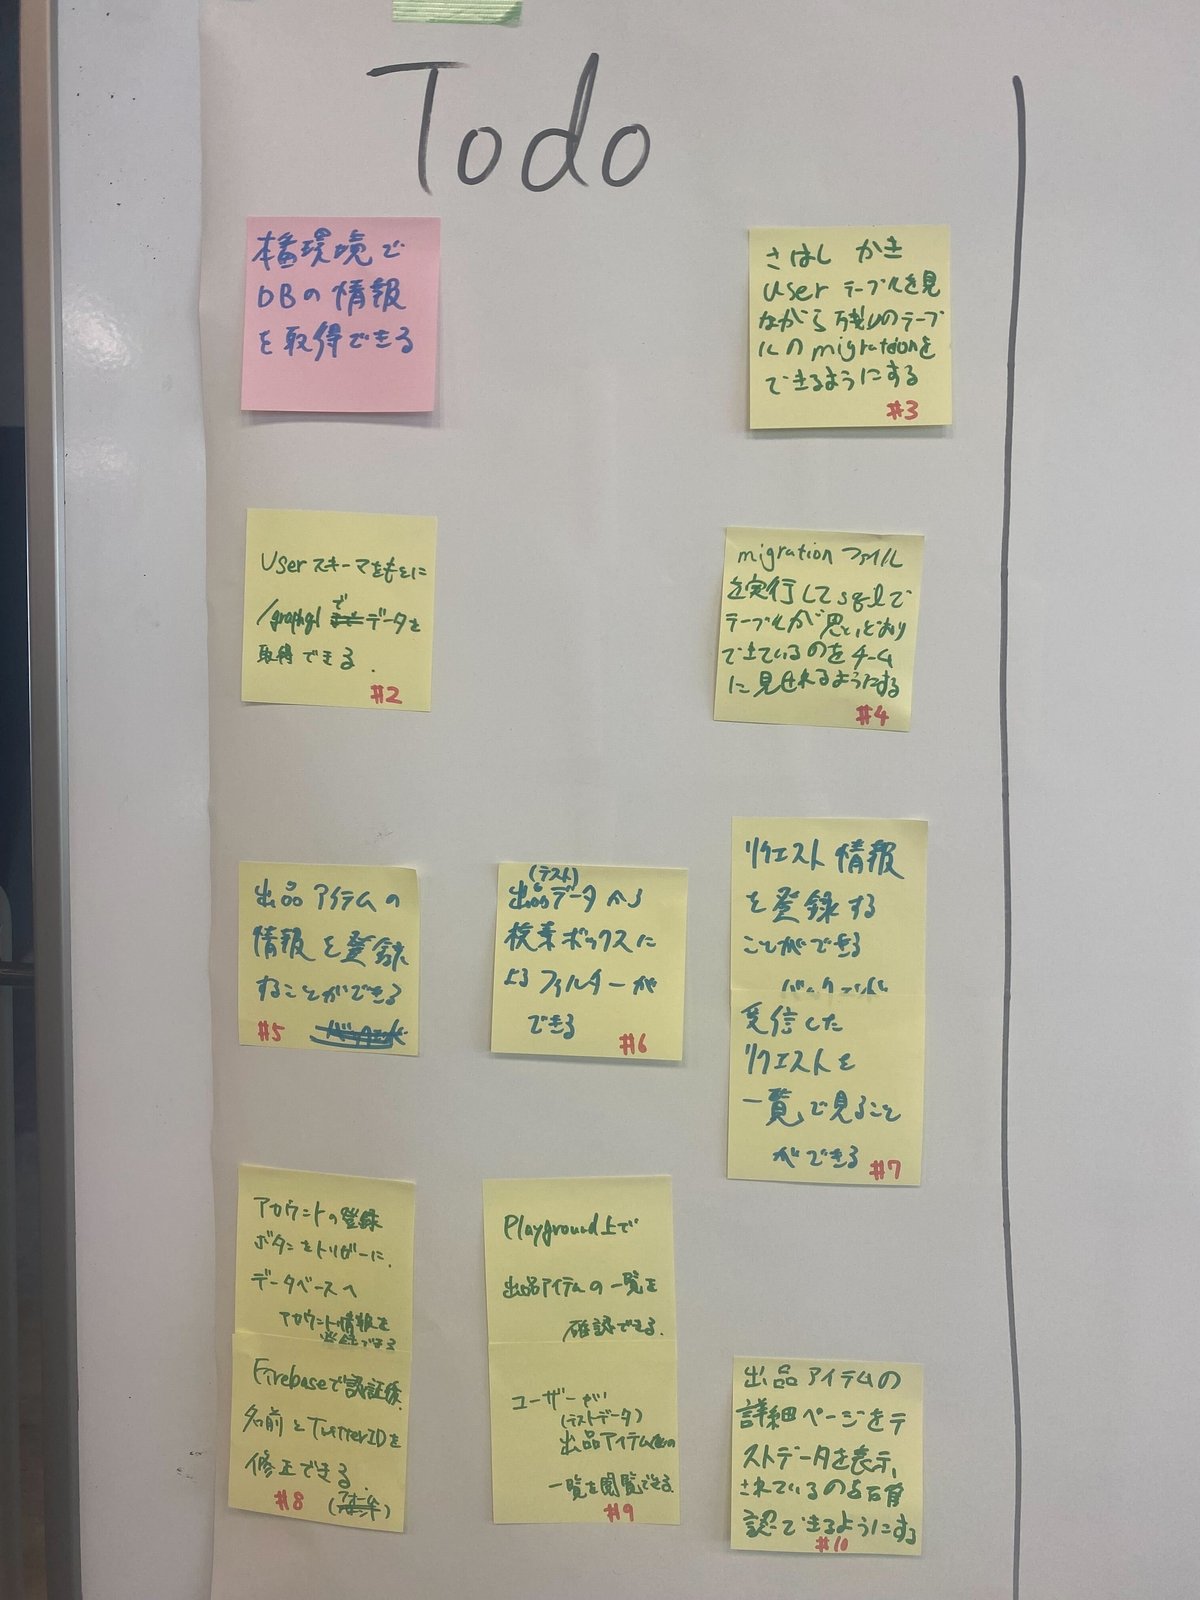 Todo
本番環境で
DBの情報
を取得できる
さはし かき
User テーブルを見
ながら残りのテーブ
ルのmigrationを
できるようにする
#3
Userスキーマをもとに
/graphqlでデータを
取得できる.
#2
migrationファイル
を実行してsqlで
テーブルが思いどおり
できているのをチーム
に見せれるようにする
#4
出品アイテムの
情報を登録
することができる
#5
(テスト)
出品データから
検索ボックスに
よるフィルターが
できる
#6
リクエスト情報
を登録する
ことができる
バックエンド
受信した
リクエストを
一覧で見ること
ができる
#7
アカウントの登録
ボタンをトリガーに.
データベースへ
アカウント情報を
登録できる
Firebaseで認証後.
名前とTwitterIDを
修正できる.
#8
Playground上で
出品アイテムの一覧を
確認できる.
ユーザーが
(テストデータ)
出品アイテムの
一覧を閲覧できる.
#9
出品アイテムの
詳細ページをテ
ストデータを表示
されているのを確
認できるようにする
#10